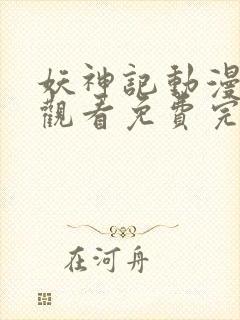 妖神記動漫
觀看免費完
在河舟